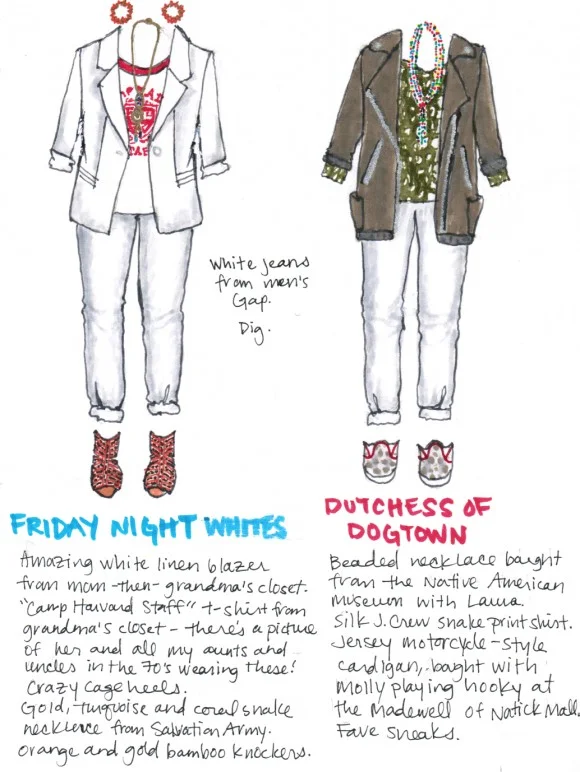 White jeans
from men's
Gap.
Dig.
FRIDAY NIGHT WHITES
Amazing white linen blazer
from mom-then-grandma's closet.
"Camp Harvard Staff" t-shirt from
grandma's closet - there's a picture
of her and all my aunts and
uncles in the 70's wearing these!
Crazy cage heels.
Gold, turquoise and coral snake
necklence from Salvation Army.
orange and gold bamboo knockers.
DUTCHESS OF
DOGTOWN
Beaded necklace baught
from the Native American
Museum with Laura.
Silk J.Crew snake print shirt.
Jersey motorcycle-style
cardigan, baught with
Molly playing hooky at
the Madewell of Natick Mall.
Fave sneaks.